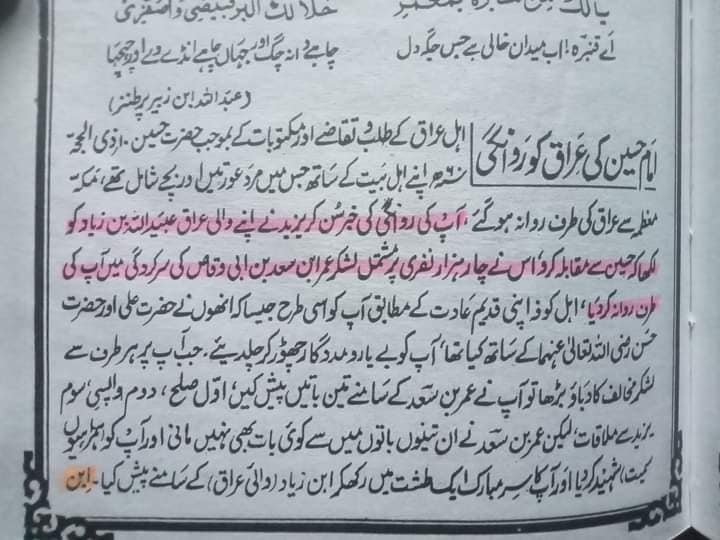 خلالك البر فبيضي واصفري
اے قنبرہ! اب میدان خالی ہے جس جگہ دل
چاہے دانہ چگ اور جہاں چاہے انڈے دے اور چہچہا
(عبداللہ ابن زبیر پر طنز)
امام حسین کی عراق کو روانگی
اہل عراق کے طلب و تقاضے اور مکتوبات کے بموجب حضرت حسین ۱۰ ذی الحجہ
۶۰ھ اپنے اہل بیت کے ساتھ جس میں مرد عورتیں اور بچے شامل تھے، مکہ
معظمہ سے عراق کی طرف روانہ ہوگئے، آپ کی روانگی کی خبر سن کر یزید نے اپنے والی عراق عبیداللہ بن زیاد کو
لکھا کہ حسین سے مقابلہ کرو اس نے چار ہزار نفری پر مشتمل لشکر عمر ابن سعد بن ابی وقاص کی سرکردگی میں آپ کی
طرف روانہ کردیا، اہل کوفہ اپنی قدیم عادت کے مطابق آپ کو اسی طرح جیسا کہ انھوں نے حضرت علی اور حضرت
حسن رضی اللہ تعالیٰ عنہما کے ساتھ کیا تھا، آپ کو بے یار و مددگار چھوڑ کر چلدیئے۔ جب آپ پر ہر طرف سے
لشکر مخالف کا دباؤ بڑھا تو آپ نے عمر بن سعد کے سامنے تین باتیں پیش کیں، اوّل صلح، دوم واپسی، سوم
یزید سے ملاقات، لیکن عمر بن سعد نے ان تینوں باتوں میں سے کوئی بات بھی نہیں مانی اور آپ کو (ہمراہیوں
سمیت) شہید کردیا اور آپ کا سر مبارک ایک طشت میں رکھ کر ابن زیاد (والی عراق) کے سامنے پیش کیا۔ ابن